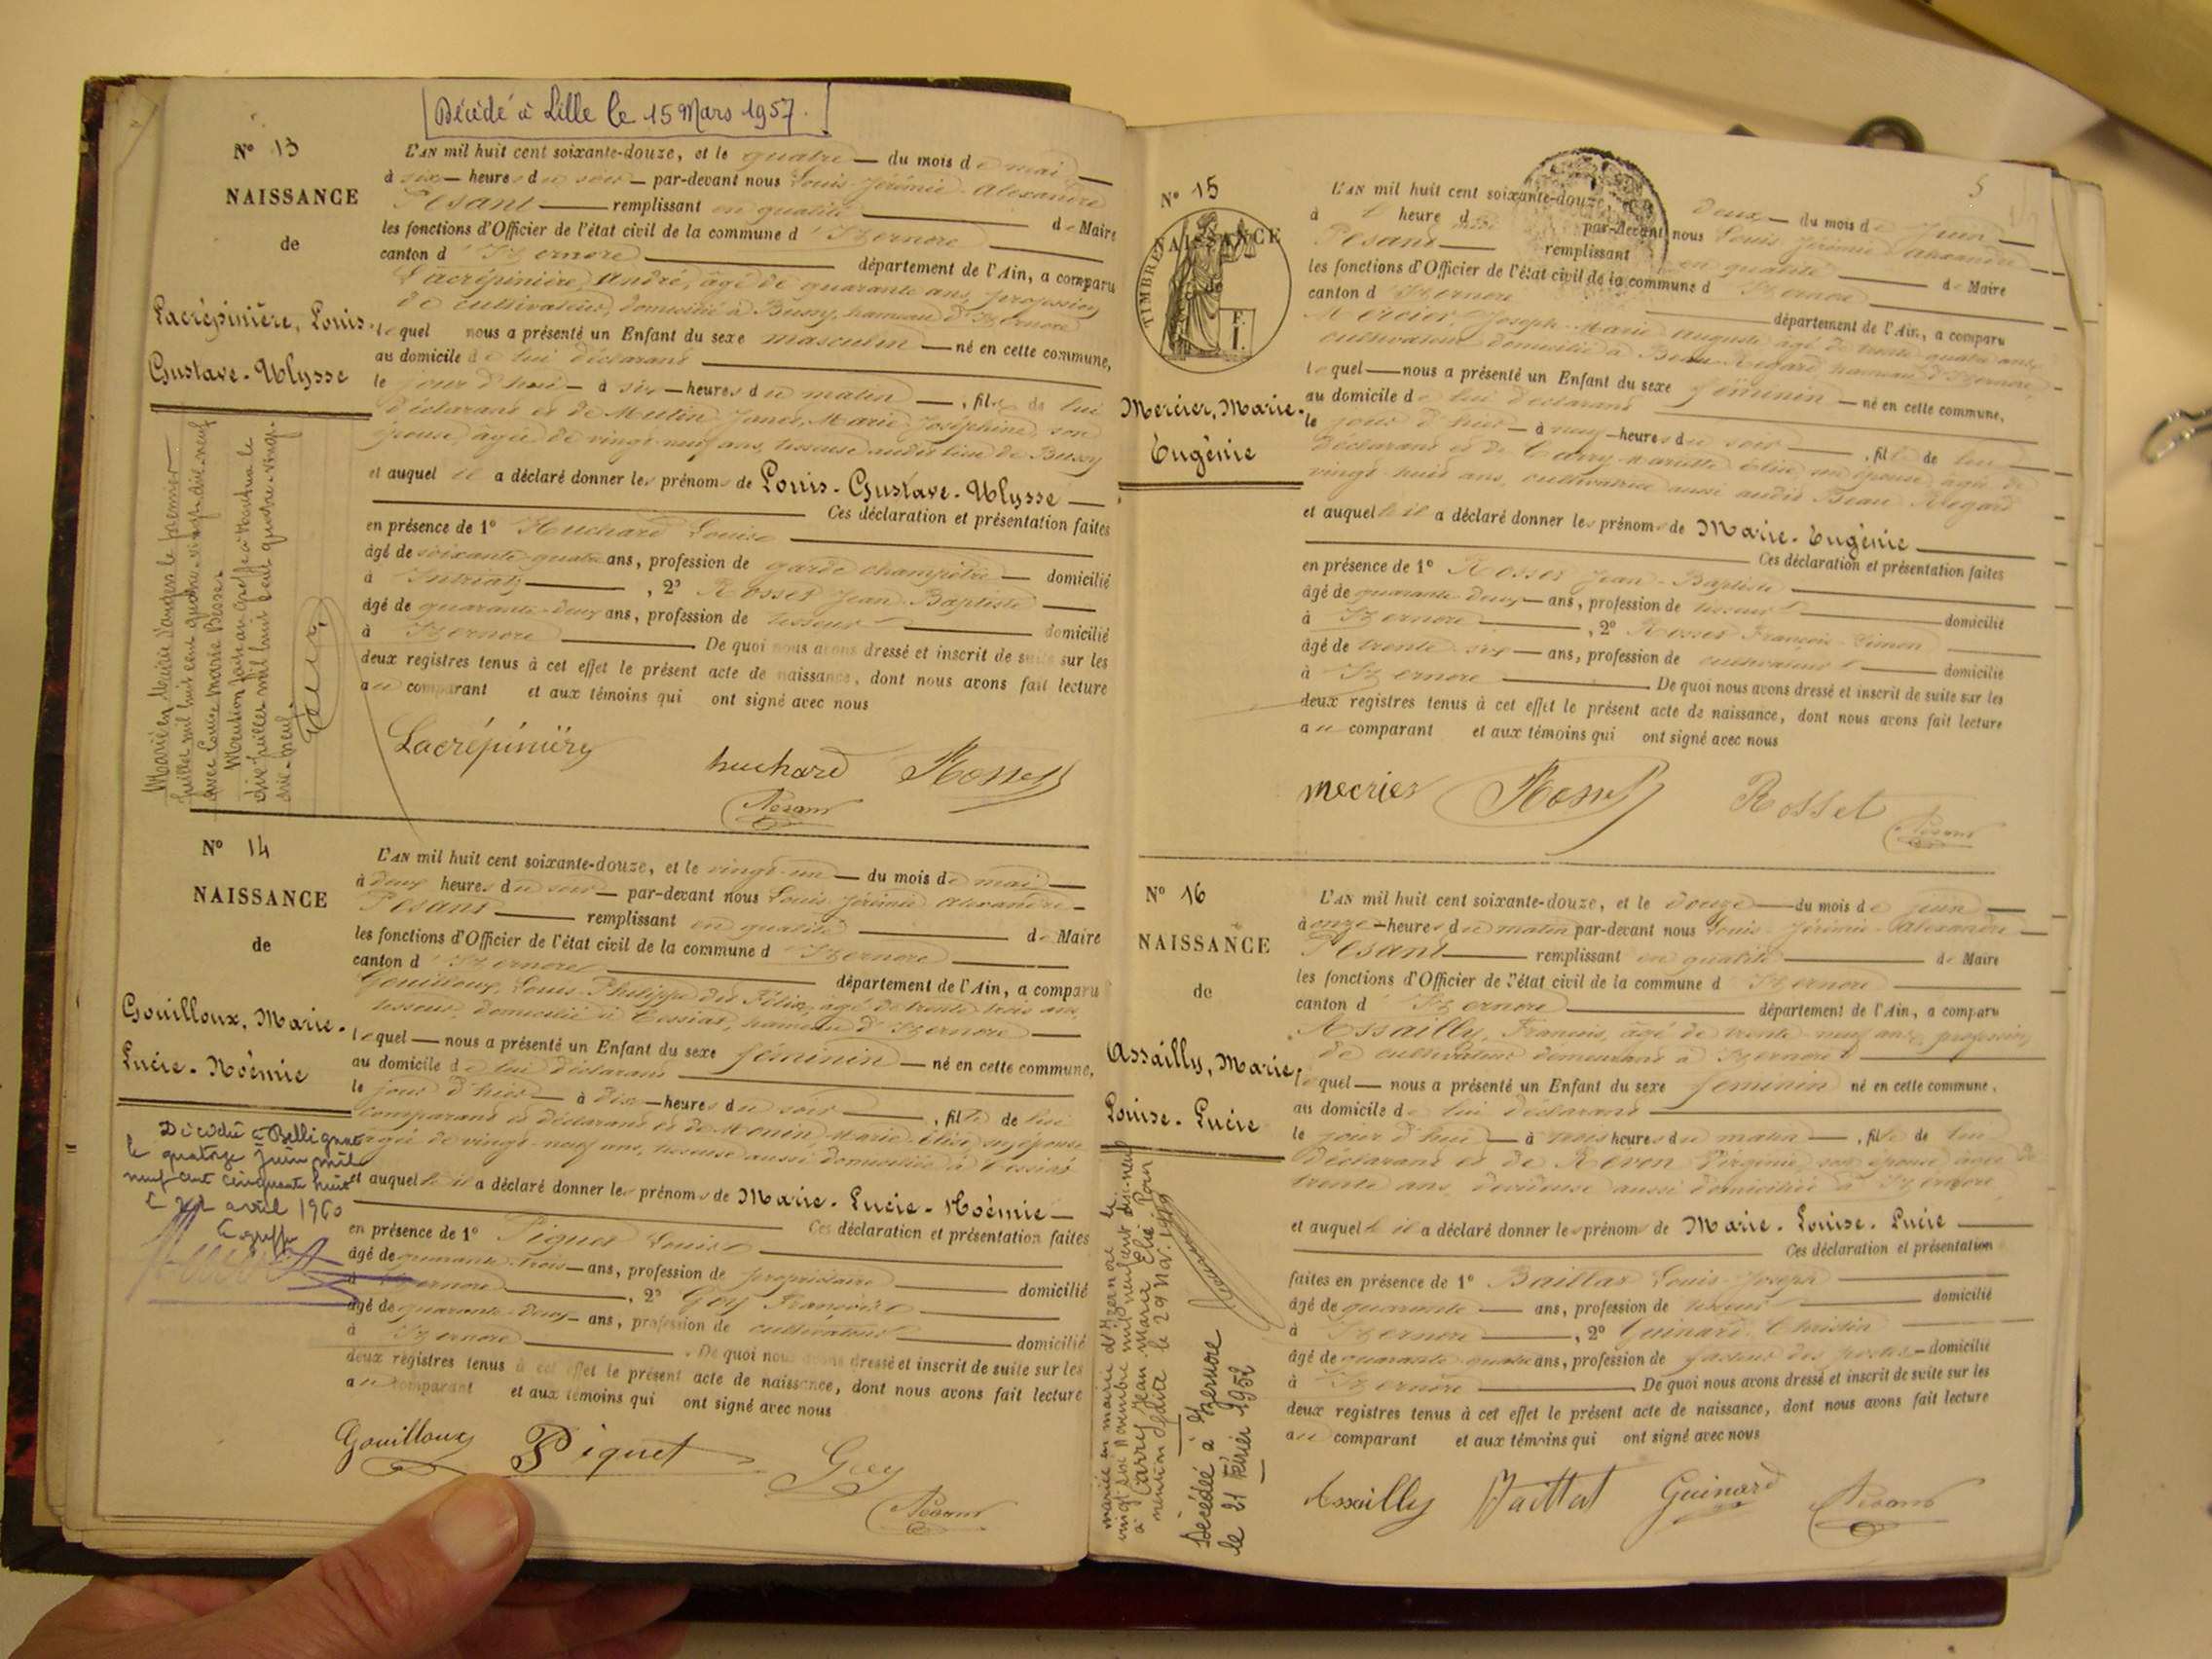 Décédé à Lille le 15 Mars 1957.
N° 13
NAISSANCE
de
Lacrépinière, Louis-
Gustave-Ulysse
L'AN mil huit cent soixante-douze, et le quatre du mois de mai
à six heures du soir par-devant nous Louis Jérémie Alexandre
Pesant remplissant en qualité de Maire
les fonctions d'Officier de l'état civil de la commune d'Izernore
canton d'Izernore département de l'Ain, a comparu
Lacrépinière, André, âgé de quarante ans, profession
de cultivateur, domicilié à Bussy, hameau d'Izernore
lequel nous a présenté un Enfant du sexe masculin né en cette commune,
au domicile de lui déclarant
le jour d'hui à six heures du matin, fils de lui
déclarant et de Mutin Marie Joséphine son
épouse, âgée de vingt-neuf ans, tisseuse audit lieu de Bussy
et auquel il a déclaré donner les prénoms de Louis-Gustave-Ulysse
Ces déclaration et présentation faites
en présence de 1° Huchard Louis
âgé de soixante-quatre ans, profession de garde champêtre domicilié
à Intriat, 2° Rosset Jean-Baptiste
âgé de quarante-deux ans, profession de tisseur domicilié
à Izernore De quoi nous avons dressé et inscrit de suite sur les
deux registres tenus à cet effet le présent acte de naissance, dont nous avons fait lecture
au comparant et aux témoins qui ont signé avec nous
Lacrépinière
huchard Rosset
Pesant
Marié en Mairie d'Angers le premier
Juillet mil huit cent quatre-vingt-dix-neuf
avec Louise Marie Besse
Mention faite au Greffe à Nantua le
dix Juillet mil huit cent quatre-vingt-
dix-neuf.
N° 14
NAISSANCE
de
Gouilloux, Marie-
Lucie-Noèmie
L'AN mil huit cent soixante-douze, et le vingt-un du mois de mai
à deux heures du soir par-devant nous Louis Jérémie Alexandre
Pesant remplissant en qualité de Maire
les fonctions d'Officier de l'état civil de la commune d'Izernore
canton d'Izernore département de l'Ain, a comparu
Gouilloux, Louis-Philippe dit Félix, âgé de trente trois ans,
tisseur, domicilié à Tessiat, hameau d'Izernore
lequel nous a présenté un Enfant du sexe féminin né en cette commune,
au domicile de lui déclarant
le jour d'hier à dix heures du soir, fille de lui
comparant et déclarant et de Monin Marie Élise, son épouse
âgée de vingt-neuf ans, tisseuse aussi domiciliée à Tessiat
et auquel il a déclaré donner les prénoms de Marie-Lucie-Noèmie
Ces déclaration et présentation faites
en présence de 1° Piquet Louis
âgé de quarante-trois ans, profession de propriétaire domicilié
à Izernore, 2° Goy François
âgé de quarante-deux ans, profession de cultivateur domicilié
à Izernore De quoi nous avons dressé et inscrit de suite sur les
deux registres tenus à cet effet le présent acte de naissance, dont nous avons fait lecture
au comparant et aux témoins qui ont signé avec nous
Gouilloux Piquet Goy
Pesant
Décédée à Bellignat
le quatorze juin mil
neuf cent cinquante huit
avril 1960
N° 15
NAISSANCE
de
TIMBRE
F.
1.
Mercier, Marie-
Eugènie
L'AN mil huit cent soixante-douze, deux du mois de juin
à heure par-devant nous Louis Jérémie Alexandre
Pesant remplissant en qualité de Maire
les fonctions d'Officier de l'état civil de la commune d'Izernore
canton d'Izernore département de l'Ain, a comparu
Mercier, Joseph-Marie Auguste âgé de trente-quatre ans,
cultivateur domicilié à Beau-Regard hameau d'Izernore
lequel nous a présenté un Enfant du sexe féminin né en cette commune,
au domicile de lui déclarant
le jour d'hier à neuf heures du soir, fille de lui
déclarant et de Carry Mariette Élise son épouse, âgée de
vingt-huit ans, cultivatrice aussi audit Beau Regard
et auquel il a déclaré donner les prénoms de Marie-Eugènie
Ces déclaration et présentation faites
en présence de 1° Rosset Jean-Baptiste
âgé de quarante-deux ans, profession de tisseur domicilié
à Izernore, 2° Rosset François-Simon
âgé de trente-six ans, profession de cultivateur domicilié
à Izernore De quoi nous avons dressé et inscrit de suite sur les
deux registres tenus à cet effet le présent acte de naissance, dont nous avons fait lecture
au comparant et aux témoins qui ont signé avec nous
mecrier Rosset Rosset
Pesant
N° 16
NAISSANCE
de
Assailly, Marie-
Louise-Lucie
L'AN mil huit cent soixante-douze, et le douze du mois de juin
à onze heures du matin par-devant nous Louis Jérémie Alexandre
Pesant remplissant en qualité de Maire
les fonctions d'Officier de l'état civil de la commune d'Izernore
canton d'Izernore département de l'Ain, a comparu
Assailly, François, âgé de trente neuf ans, profession
de cultivateur demeurant à Izernore
lequel nous a présenté un Enfant du sexe féminin né en cette commune,
au domicile de lui déclarant
le jour d'hui à trois heures du matin, fille de lui
déclarant et de Revon Virginie, son épouse âgée de
trente ans, aussi domiciliée à Izernore
et auquel il a déclaré donner les prénoms de Marie-Louise-Lucie
Ces déclaration et présentation
faites en présence de 1° Baillat Louis Joseph
âgé de quarante ans, profession de tisseur domicilié
à Izernore, 2° Guinard Christin
âgé de quarante-quatre ans, profession de facteur des postes domicilié
à Izernore De quoi nous avons dressé et inscrit de suite sur les
deux registres tenus à cet effet le présent acte de naissance, dont nous avons fait lecture
au comparant et aux témoins qui ont signé avec nous
Assailly Baillat Guinard Pesant
mariée en mairie d'Izernore le
vingt six Novembre mil neuf cent dix-neuf
à Carry Jean Marie Elie. Pour
mention faite le 29 Nov. 1919
Décédée à Izernore
le 21 Février 1952